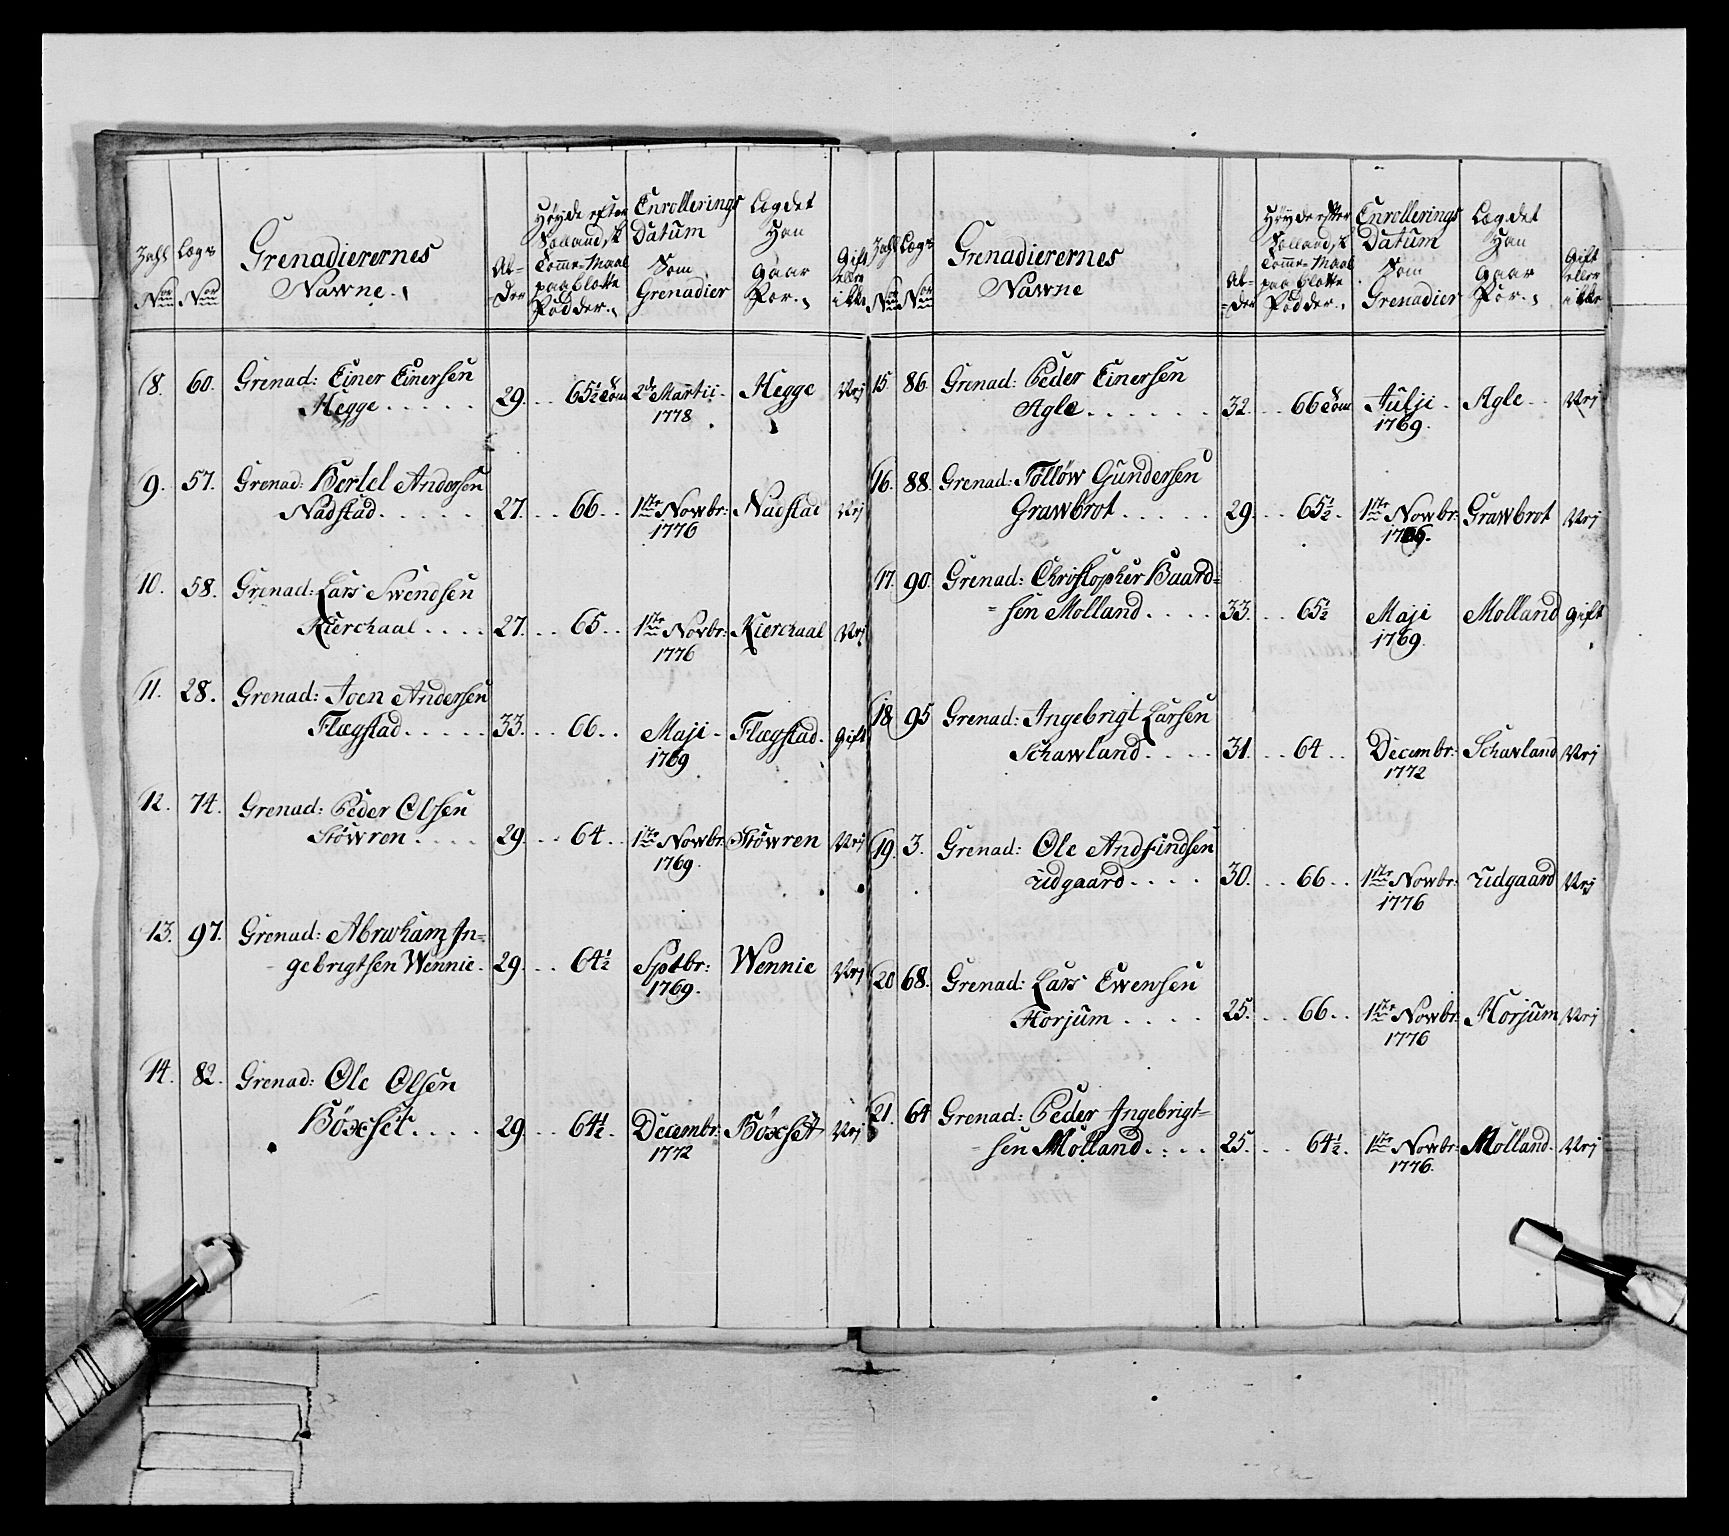 Zahl Nom
Lægs Nom
Grenadierernes
Nawne.
Al-
der
Høyde efter
Sællandsk
Tomme-Maal
paa blotte
Fødder.
Enrollerings
Datum
Som
Grenadier
Lægdet
Han
gaar
For.
Gift
eller
ikke
8. 60. Grenad: Einer Einersen
Hegge . . . . . 29. . . 65½ Tom 2de Martii Hegge Vgi
1778
9. 57. Grenad: Bertel Andersen
Nadstad . . . . . 27. . . 66 . . 1ste Nowbr: Nadstad Vgi
1776
10. 58. Grenad: Lars Swendsen
Kierchaal . . . . 27. . . 65 . . 1ste Novbr: Kierchaal Vgi
1776
11. 28. Grenad: Joen Andersen
Flægstad . . . . . 33. . . 66 . . Maji Flægstad. Gift
1769
12. 74. Grenad: Peder Olsen
Støwren . . . . 29. . . 64 . . 1ste Nowbr: Støwren Vgi
1769.
13. 97. Grenad: Abraham In-
gebrigtsen Wennie. 29. . . 64½ Sptbr: Wennie Vgi
1769.
14. 82. Grenad: Ole Olsen
Bøxset . . . . 29. . . 64½. Decembr: Bøxset Vgi
1772
Zahl Nom
Lægs Nom
Grenadierernes
Nawne
Al-
der
Høyde efter
Sællandsk
Tomme-Maal
paa blotte
Fødder.
Enrollerings
Datum
Som
Grenadier
Lægdet
Han
gaar
For.
Gift
eller
ikke
15. 86. Grenad: Peder Einersen
Agle . . . . . . 32. . . 66 Tom Julji Agle Vgi
1769.
16. 88. Grenad: Tølløw Gundersen
Grawbrot . . . . . 29. . . 65½. 1ste Nowbr: Grawbrot Vgi
17. 90. Grenad: Christopher Baard-
sen Molland . . . . 33. . . 65½ Maji Molland Gift
1769.
18. 95 Grenad: Ingebrigt Larsen
Schawland . . . . 31. . . 64 . . Decembr: Schavland Vgi
1772
19. 3. Grenad: Ole Andfindsen
Udgaard . . . . 30. . . 66 . . 1ste Nowbr: Udgaard Vgi
1776
20 68. Grenad: Lars Ewensen
Horjum . . . . 25. . . 66 . . 1ste Nowbr: Horjum Vgi
1776
21. 64 Grenad: Peder Ingebrigt-
sen Molland . . . . 25. . . 64½. 1ste Nowbr: Molland. Vgi
1776.